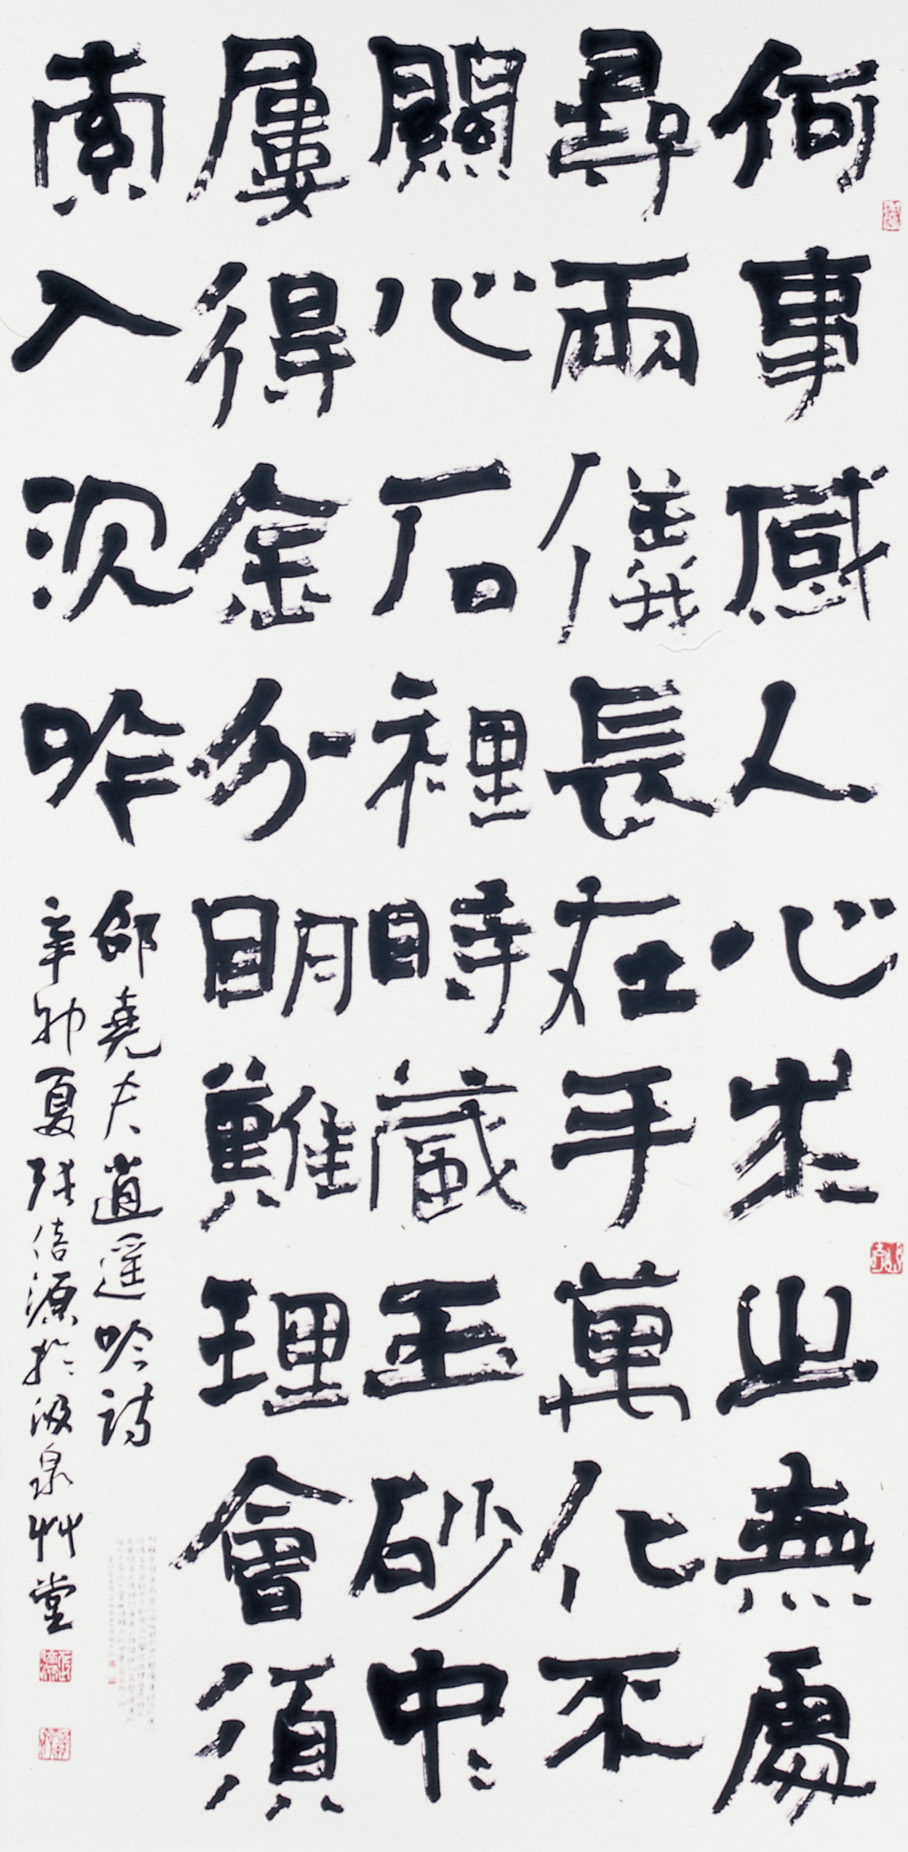 何事感人心求之無處
尋兩儀長在手萬化不
關心石裡時藏玉砂中
屢得金分明難理會須
索入沉吟
邵堯夫逍遥吟詩
辛卯夏張倍源於汲泉艸堂